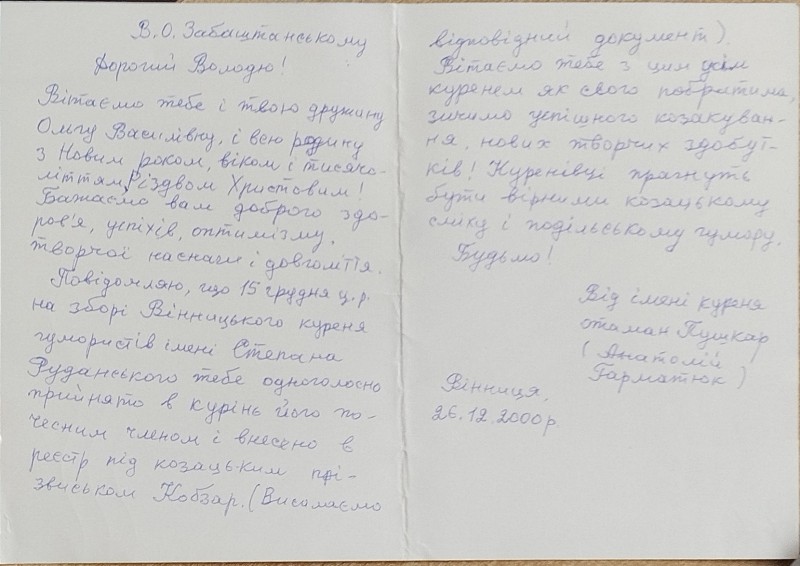 В. О. Забаштанському
Дорогий Володю!
Вітаємо тебе і твою дружину
Ольгу Василівну, і всю родину
з Новим роком, віком і тисячо-
літтям, Різдвом Христовим!
Бажаємо вам доброго здо-
ров'я, успіхів, оптимізму,
творчої наснаги і довголіття.
Повідомляю, що 15 грудня ц.р.
на зборі Вінницького куреня
гумористів імені Степана
Руданського тебе одноголосно
прийнято в курінь його по-
чесним членом і внесено в
реєстр під козацьким прі-
звиськом Кобзар. (Висилаємо
відповідний документ).
Вітаємо тебе з цим усім
куренем як свого побратима,
зичимо успішного козакуван-
ня, нових творчих здобут-
ків! Куренівці прагнуть
бути вірними козацькому
сміху і подільському гумору.
Будьмо!
Від імені куреня
отаман Пушкар
(Анатолій
Гарматюк)
Вінниця,
26.12.2000р.